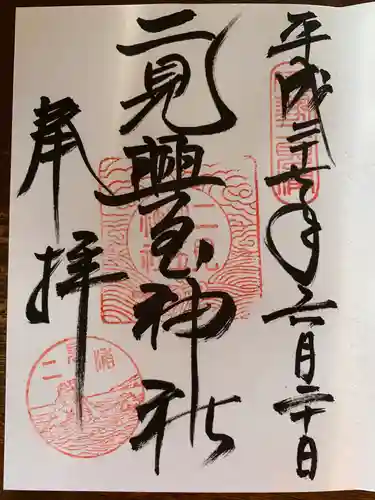 平成二十七年六月二十日
二見興玉神社
奉拝
二見興玉神社
二見浦